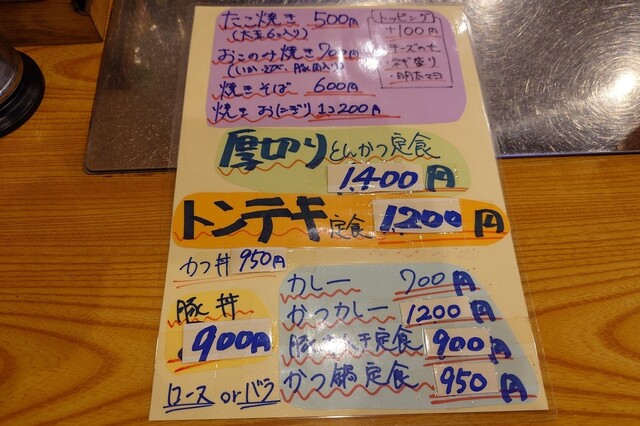 たこ焼き 500円
(大玉6ヶ入り)
おこのみ焼き 700円
(いか・えび・豚肉入り)
焼きそば 600円
焼きおにぎり 1コ200円
トッピング
+100円
・チーズのせ
・ネギ盛り
・明太マヨ
厚切りとんかつ定食
1,400円
トンテキ定食 1200円
かつ丼 950円
豚丼
900円
ロース or バラ
カレー 700円
かつカレー 1200円
定食 900円
かつ鍋定食 950円